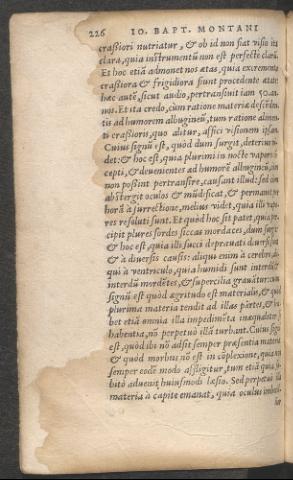 226 IO. BAPT. MONTANI
crassiori nutriatur, & ob id non fiat visio ita
clara, quia instrumentũ non est perfectè clarũ.
Et hoc etiã admonet nos ætas, quia excrementa
crassiora & frigidiora fiunt procedente ætate
hæc autẽ, sicut audio, pertransiuit iam 50. an-
nos. Et ita credo, cùm ratione materiæ descẽden
tis ad humorem albugineũ, tum ratione alimen
ti crassioris, quo alitur, affici visionem ipsam.
Cuius signũ est, quòd dum surgit, deterius ui-
det: & hoc est, quia plurimi in nocte vapores
cepti, & deuenientes ad humorẽ albugineũ,
non possint pertransire, causant illud: sed dum
abstergit oculos & mũdificat, & permanet per
horã à surrectione, melius videt, quia illi vapo-
res resoluti sunt. Et quòd hoc sit patet, quia per
cipit plures sordes siccas mordaces, dum surgit
& hoc est, quia illi succi deprauati diuersi sunt
& à diuersis causis: aliqui enim à cerebro, ali
qui à ventriculo, quia humidi sunt interdũ
interdũ mordẽtes, & supercilia grauãtur: cuius
signũ est quòd ægritudo est materialis, & quòd
plurima materia tendit ad illas partes, & ui-
bet etiã omnia illa impedimẽta inæqualitatẽ
habentia, nõ perpetuò illã turbant. Cuius signũ
est, quòd ibi nõ adsit semper præsentia materiæ
& quòd morbus nõ est in cõplexione, quia nõ
semper eodẽ modo affligitur, tum etiã quia su
bitò aduenit huiusmodi læsio. Sed perpetuò illa
materia à capite emanat, quia oculus imbecil